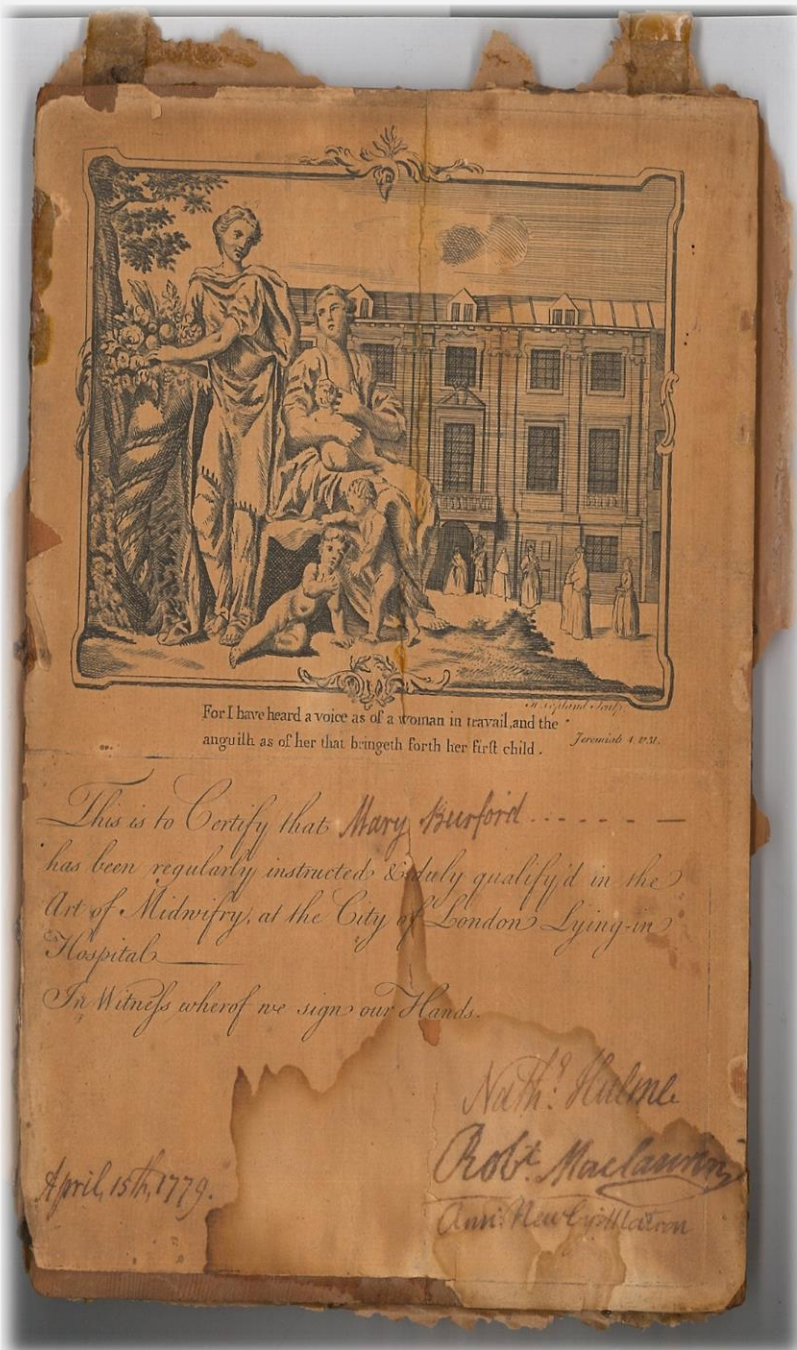 M. Copland Sculp.
For I have heard a voice as of a woman in travail, and the
anguish as of her that bringeth forth her first child. Jeremiah 4. v31.
This is to Certify that Mary Burford . . . . . . . —
has been regularly instructed & duly qualify'd in the
Art of Midwifry, at the City of London Lying-in
Hospital
In Witness wherof we sign our Hands.
Nath.l Hulme
Rob.t Maclaurin
April, 15th, 1779.
Ann: Newby Matron